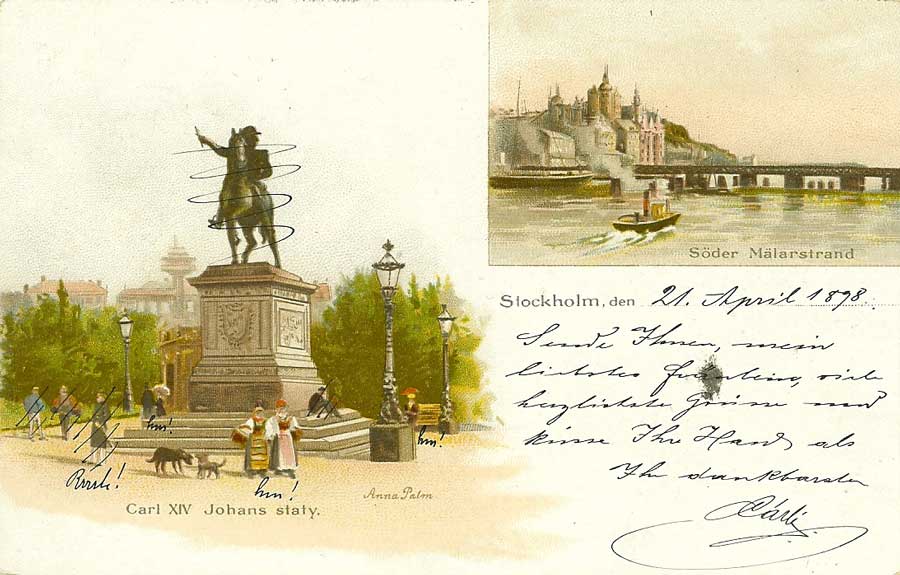 Söder Mälarstrand
Stockholm, den 21. April 1898.
Sende Ihnen, mein
liebstes Fräulein, viele
herzlichste Grüsse und
küsse Ihre Hand als
Ihr dankbarster
hm!
hm!
hm!
Anna Palm
Carl XIV Johans staty.